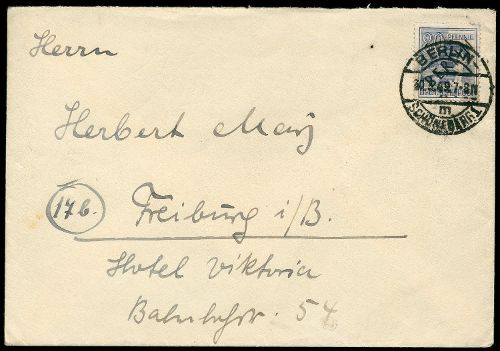 Herrn
Herbert May
17b.
Freiburg i/B.
Hotel Viktoria
Bahnhofstr. 54
PFENNIG
BERLIN
SCHÖNEBERG 1
m